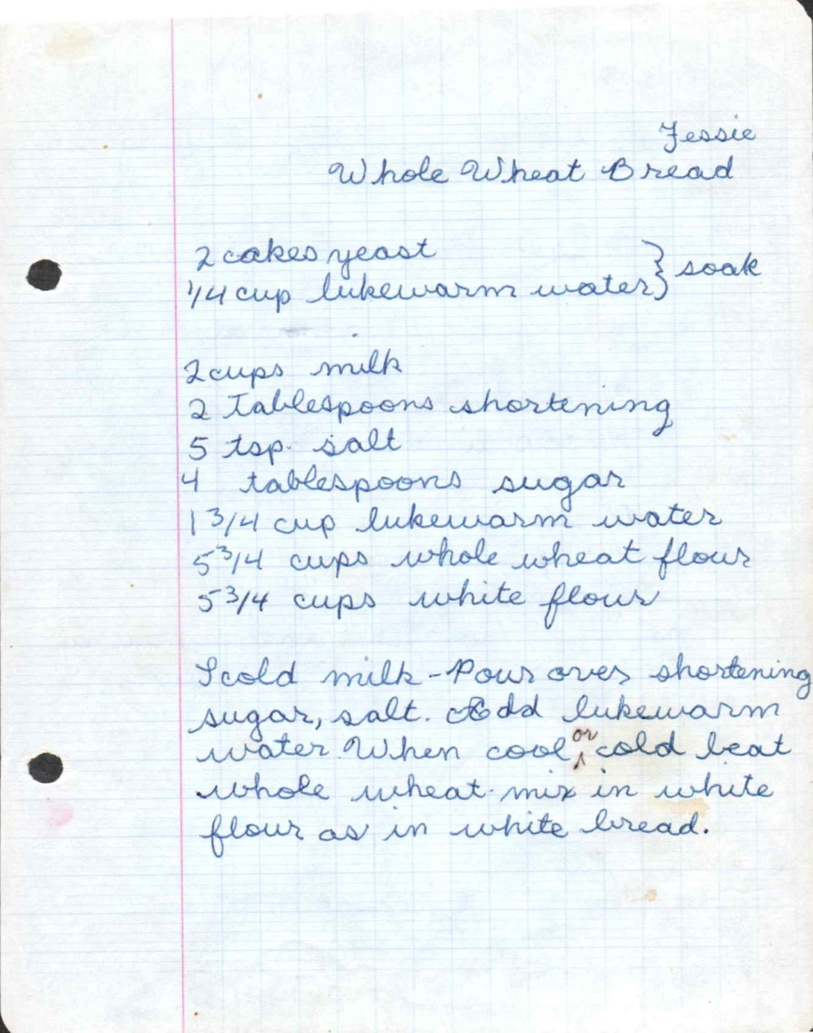 Jessie
Whole Wheat Bread
2 cakes yeast
1/4 cup lukewarm water } soak
2 cups milk
2 Tablespoons shortening
5 tsp. salt
4 tablespoons sugar
1 3/4 cup lukewarm water
5 3/4 cups whole wheat flour
5 3/4 cups white flour
Scold milk - Pour over shortening
sugar, salt. Add lukewarm
water. When cool or cold beat
whole wheat - mix in white
flour as in white bread.